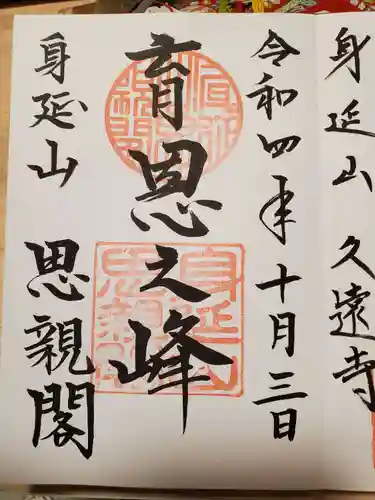 身延山 久遠寺
令和四年十月三日
育恩之峰
身延山
思親閣
身延山 思親閣